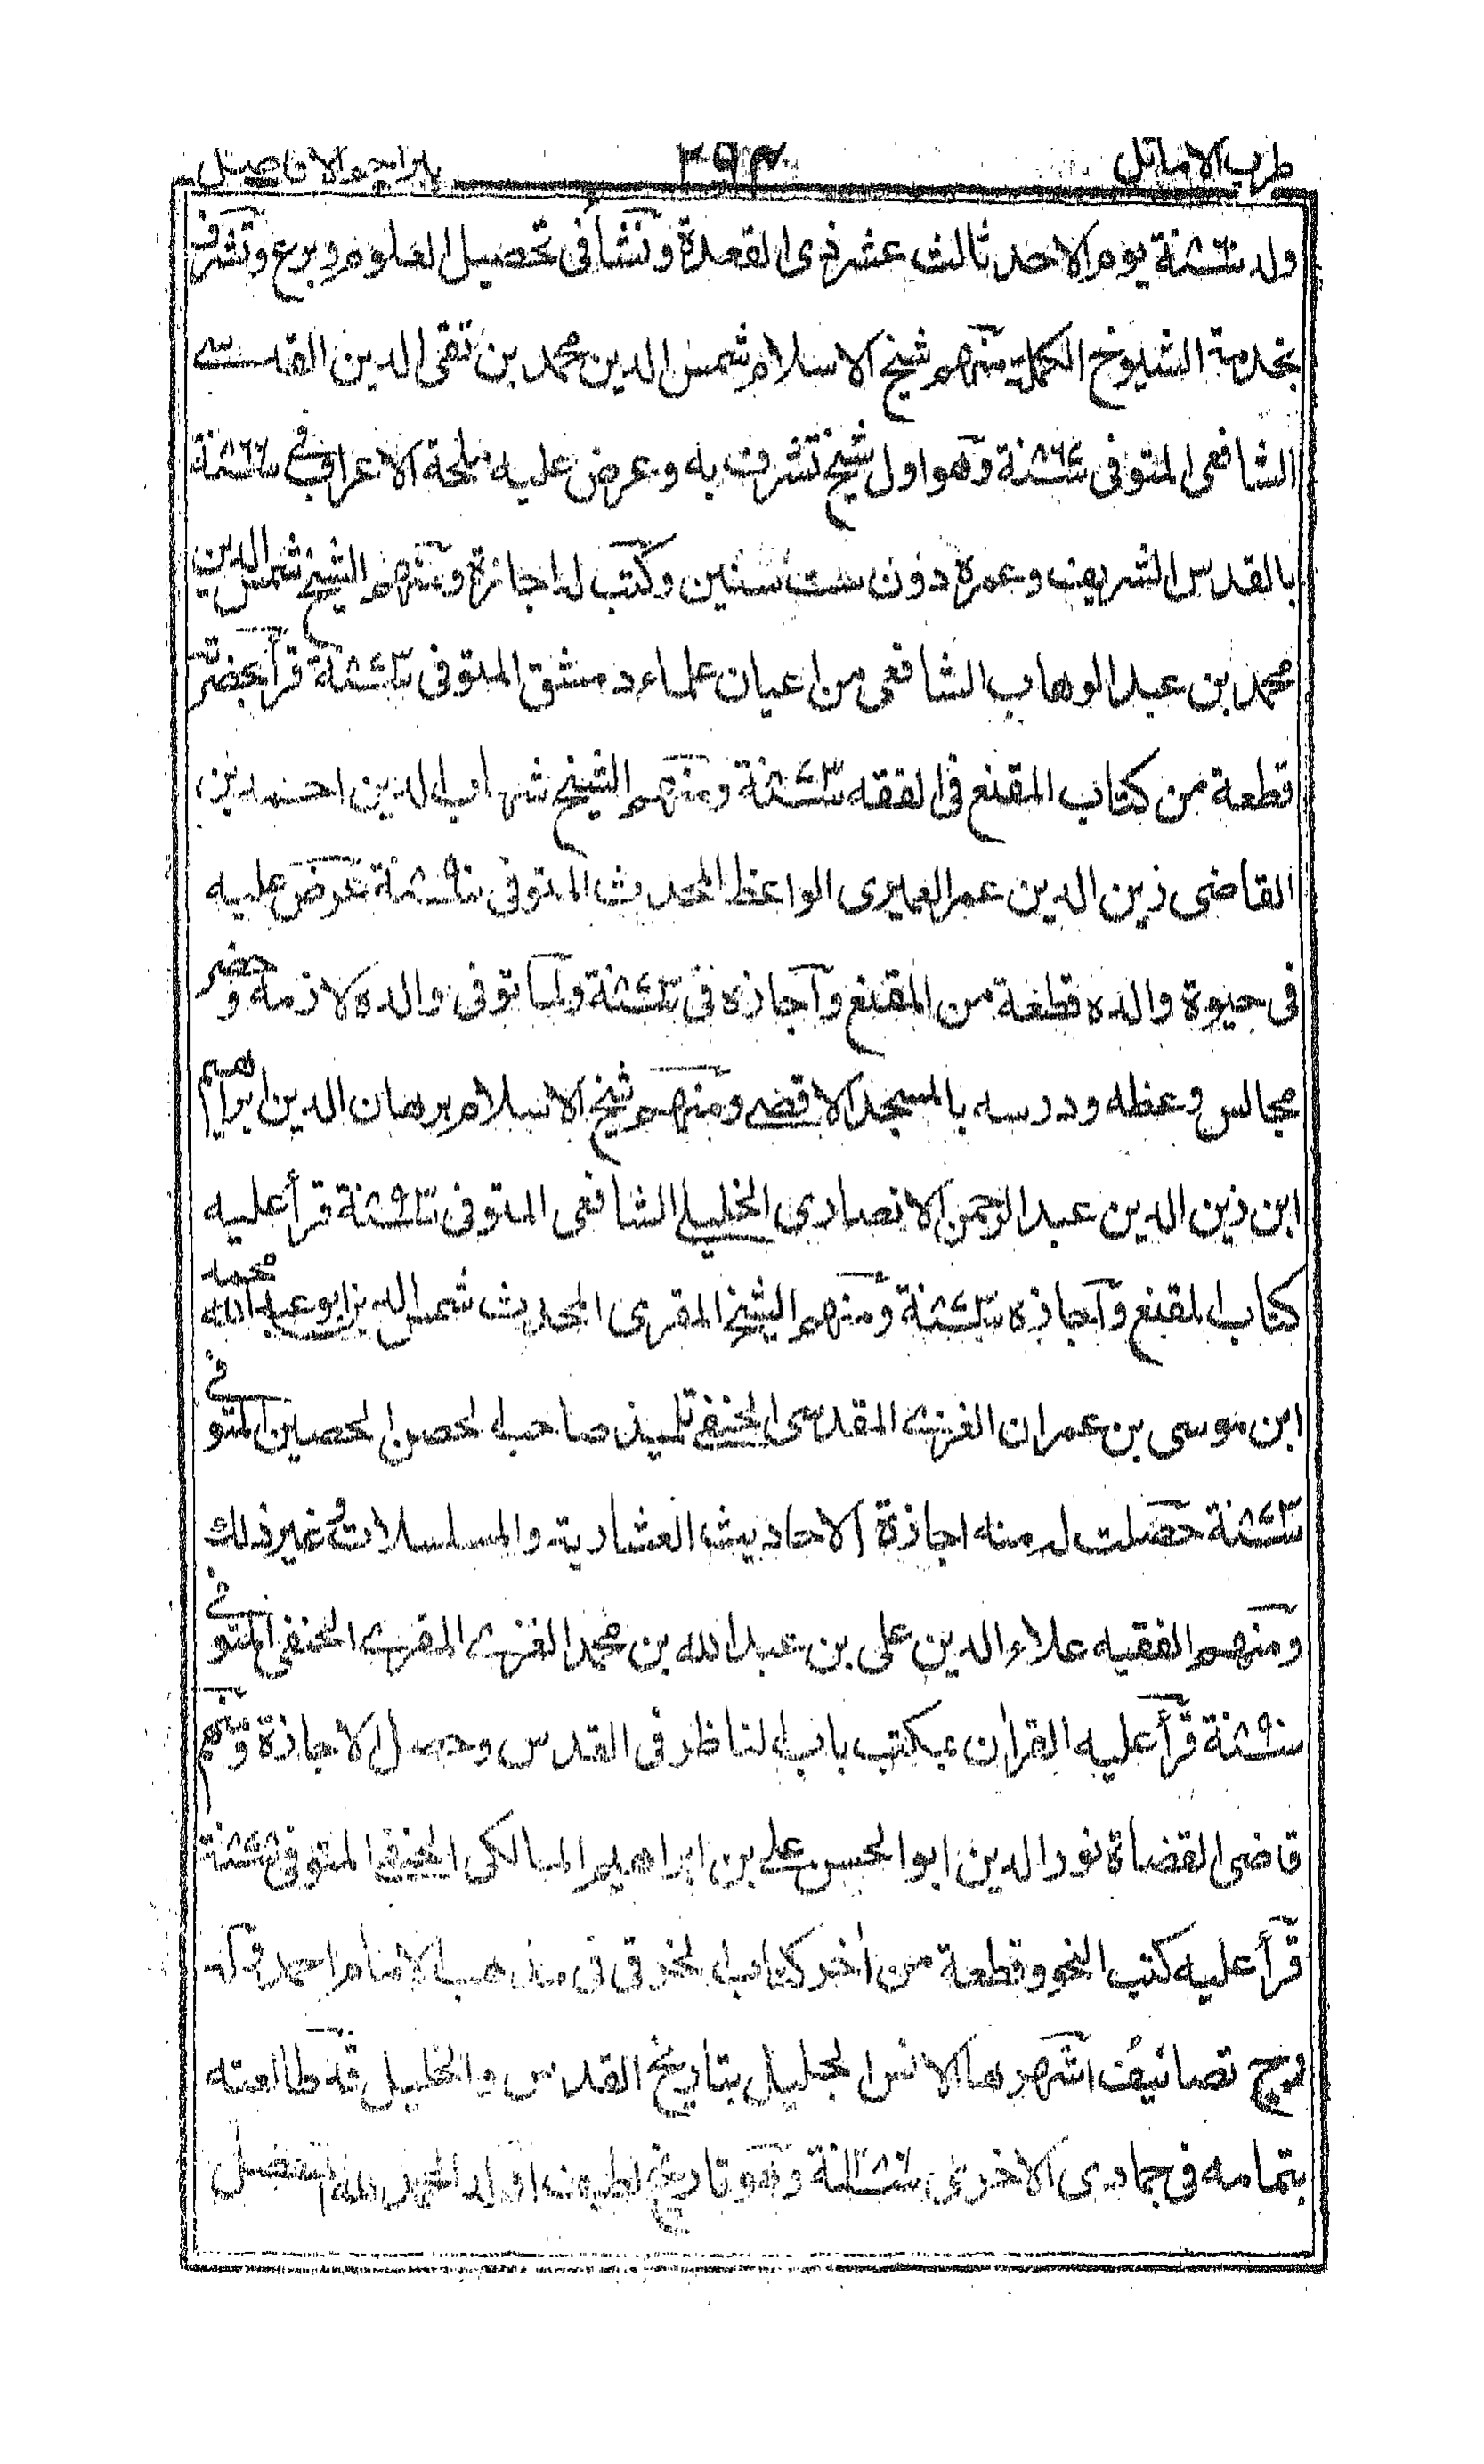 طرب الاماثل ٢٩٣ بتراجم الافاضل
ولد سنة ٨٦٠ يوم الاحد ثالث عشر ذى القعدة ونشأ فى تحصيل العلوم وبرع وتشرف
بخدمة الشيوخ الكمل منهم شيخ الاسلام شمس الدين محمد بن تقى الدين القدسى
الشافعى المتوفى سنة وهو اول شيخ تشرف به وعرض عليه ملحة الاعراب فى سنة ٨٦٦
بالقدس الشريف وعمره دون ست سنين وكتب له اجازة ومنهم الشيخ شمس الدين
محمد بن عبد الوهاب الشافعى من اعيان علماء دمشق المتوفى سنة ٨٧٣ قرأ بحضرته
قطعة من كتاب المقنع فى الفقه سنة ٨٧٣ ومنهم الشيخ شهاب الدين احمد بن
القاضى زين الدين عمر العميرى الواعظ المحدث المتوفى سنة ٨٩٠ عرض عليه
فى حيوة والده قطعة من المقنع وآجازه فى سنة ٨٧٣ ولما توفى والده لازمه وحضر
مجالس وعظه ودرسه بالمسجد الاقصى ومنهم شيخ الاسلام برهان الدين ابراهيم
ابن زين الدين عبد الرحمن الانصارى الخليلى الشافعى المتوفى سنة ٨٩٣ قرأ عليه
كتاب المقنع وآجازه سنة ٨٧٣ ومنهم الشيخ المقرى المحدث شمس الدين ابو عبد الله محمد
ابن موسى بن عمران الغزى المقدسى الحنفى تلميذ صاحب الحصن الحصين المتوفى
سنة ٨٧٣ حصلت له منه اجازة الاحاديث العشارية والمسلسلات وغير ذلك
ومنهم الفقيه علاء الدين على بن عبد الله بن محمد الغزى المقرى الحنفى المتوفى
سنة ٨٩٠ قرأ عليه القرآن بمكتب باب الناظر فى القدس وحصل الاجازة ومنهم
قاضى القضاة نور الدين ابو الحسن على بن ابراهيم المالكى الحنفى المتوفى سنة
قرأ عليه كتب النحو وقطعة من آخر كتاب الخرقى فى مذهب الامام احمد وله
تصانيف اشهرها الانس الجليل بتاريخ القدس والخليل قد طالعته
بتمامه فى جمادى الاخرى سنة ١٢٨٦ وهو تاريخ لطيف اوله الحمد لله المتفضل